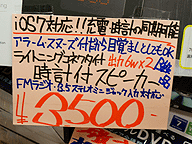 iOS7対応!!充電・時計の同期可能
アラーム・スヌーズ付だから目覚ましとしてもOK
ライトニングコネクタタイプ 出力6w×2
時計付スピーカー
FMラジオ・3.5ステレオミニジャック入力対応
3500-